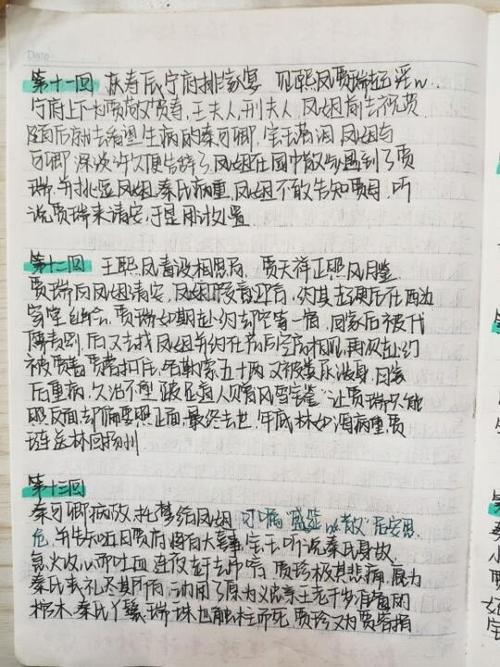 Date
第十一回 庆寿辰宁府排家宴 见熙凤贾瑞起淫心
宁府上下为贾敬贺寿,王夫人,刑夫人,凤姐前去祝贺
随后前去看望生病的秦可卿,宝玉落泪,凤姐与
可卿深谈许久便告辞了,凤姐在园中散步遇到了贾
瑞,并挑逗凤姐,秦氏病重,凤姐不敢告知贾母,听
说贾瑞来请安,于是刚收置
第十二回 王熙凤毒设相思局 贾天祥正照风月鉴
贾瑞向凤姐请安,凤姐,约其去
贾瑞如期赴约却空等一宿,回家后被代
儒责罚,后又去找凤姐并约在书房后空房相见,两次赴约
被贾蓉贾蔷抓住,勒索五十两又被粪尿浇身,回家
后重病,久治不愈 跛足道人赠风月宝鉴 让贾瑞只能
照反面,却偏要照正面,最终去世,年底林如海病重,贾
琏送林回扬州
第十三回
秦可卿病故,托梦给凤姐 可卿"盛筵必散"居安思
危,并告知近日贾府将有大喜事,宝玉听说秦氏身故,
急火攻心而吐血,连夜赶去宁府,贾珍极其悲痛,展为
秦氏丧礼尽其所有,动用了原为义忠亲王老千岁准备的
棺木,秦氏丫鬟瑞珠也触柱而死,贾珍又为贾蓉捐